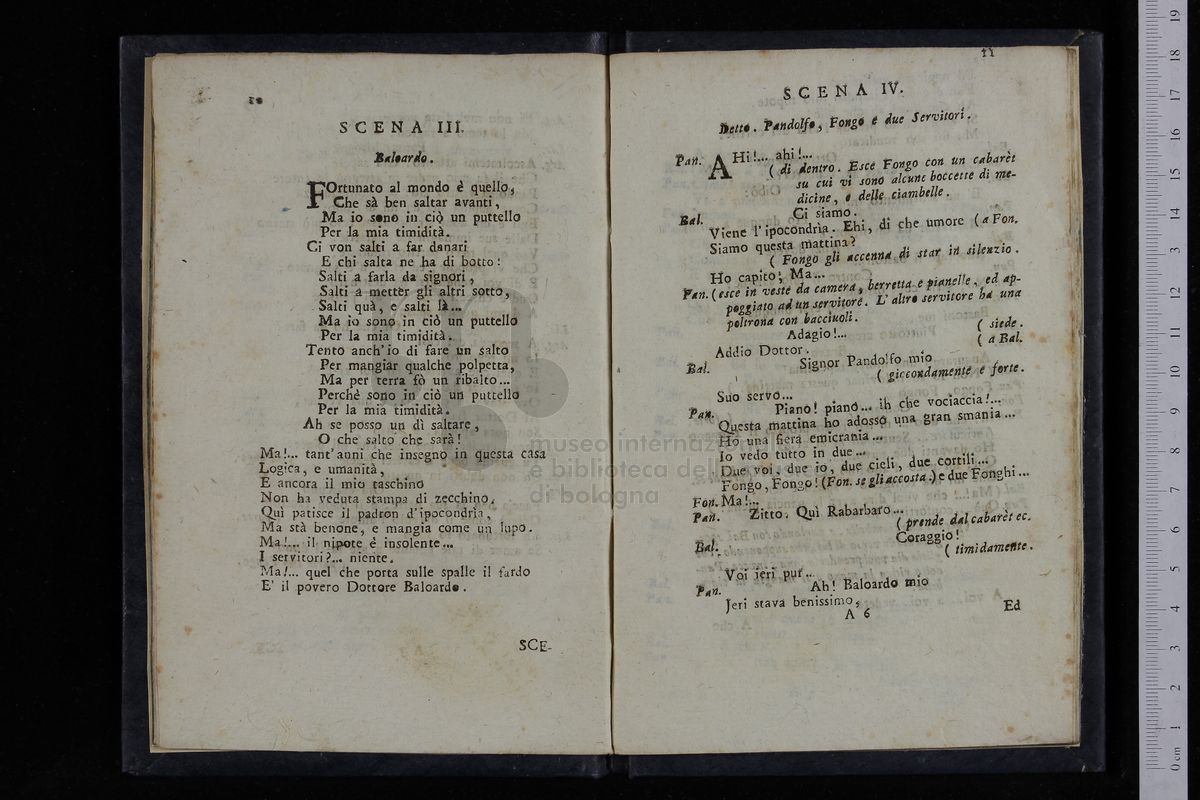 10
SCENA III.
Baloardo.
FOrtunato al mondo è quello,
Che sà ben saltar avanti,
Ma io sono in ciò un puttello
Per la mia timidità.
Ci von salti a far danari
E chi salta ne ha di botto:
Salti a farla da signori,
Salti a mettèr gli altri sotto,
Salti quà, e salti là...
Ma io sono in ciò un puttello
Per la mia timidità.
Tento anch'io di fare un salto
Per mangiar qualche polpetta,
Ma per terra fò un ribalto...
Perchè sono in ciò un puttello
Per la mia timidità.
Ah se posso un dì saltare,
O che salto che sarà!
Ma!... tant'anni che insegno in questa casa
Logica, e umanità,
E ancora il mio taschino
Non ha veduta stampa di zecchino.
Quì patisce il padron d'ipocondrìa,
Ma stà benone, e mangia come un lupo.
Ma!... il nipote è insolente...
I servitori?... niente.
Ma!... quel che porta sulle spalle il fardo
E' il povero Dottore Baloardo.
SCE-
11
SCENA IV.
Detto. Pandolfo, Fongo e due Servitori.
Pan. AHi!... ahi!...
( di dentro. Esce Fongo con un cabarèt
su cui vi sono alcune boccette di me-
dicine, e delle ciambelle.
Bal. Ci siamo.
Viene l'ipocondrìa. Ehi, di che umore ( a Fon.
Siamo questa mattina?
( Fongo gli accenna di star in silenzio.
Ho capito; Ma...
Pan. (esce in veste da camera, berretta e pianelle, ed ap-
poggiato ad un servitore. L'altro servitore ha una
poltrona con bacciuoli.
Adagio!... ( siede.
Addio Dottor. ( a Bal.
Bal. Signor Pandolfo mio
( giocondamente e forte.
Suo servo...
Pan. Piano! piano... ih che vociaccia!...
Questa mattina ho adosso una gran smania...
Ho una fiera emicrania...
Io vedo tutto in due...
Due voi, due io, due cieli, due cortili...
Fongo, Fongo! (Fon. se gli accosta.) e due Fonghi...
Fon. Ma!...
Pan. Zitto. Quì Rabarbaro...
( prende dal cabarèt ec.
Bal. Coraggio!
( timidamente.
Voi jeri pur...
Pan. Ah! Baloardo mio
Jeri stava benissimo,
A 6
Ed
museo internaz
e biblioteca del
di bologna
0 cm 1 2 3 4 5 6 7 8 9 10 11 12 13 14 15 16 17 18 19